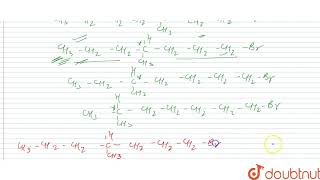 CH₃
CH₃ – CH₂ – CH₂ – C* – CH₂ – CH₂ – CH₂ – Br
H
CH₃
CH₃ – CH₂ – C* – CH₂ – CH₂ – CH₂ – CH₂ – Br
H
CH₃
CH₃ – C* – CH₂ – CH₂ – CH₂ – CH₂ – CH₂ – Br
H
CH₃
CH₃ – CH₂ – CH₂ – C – CH₂ – CH₂ – CH₂ – Br
H
CH₃
doubtnut